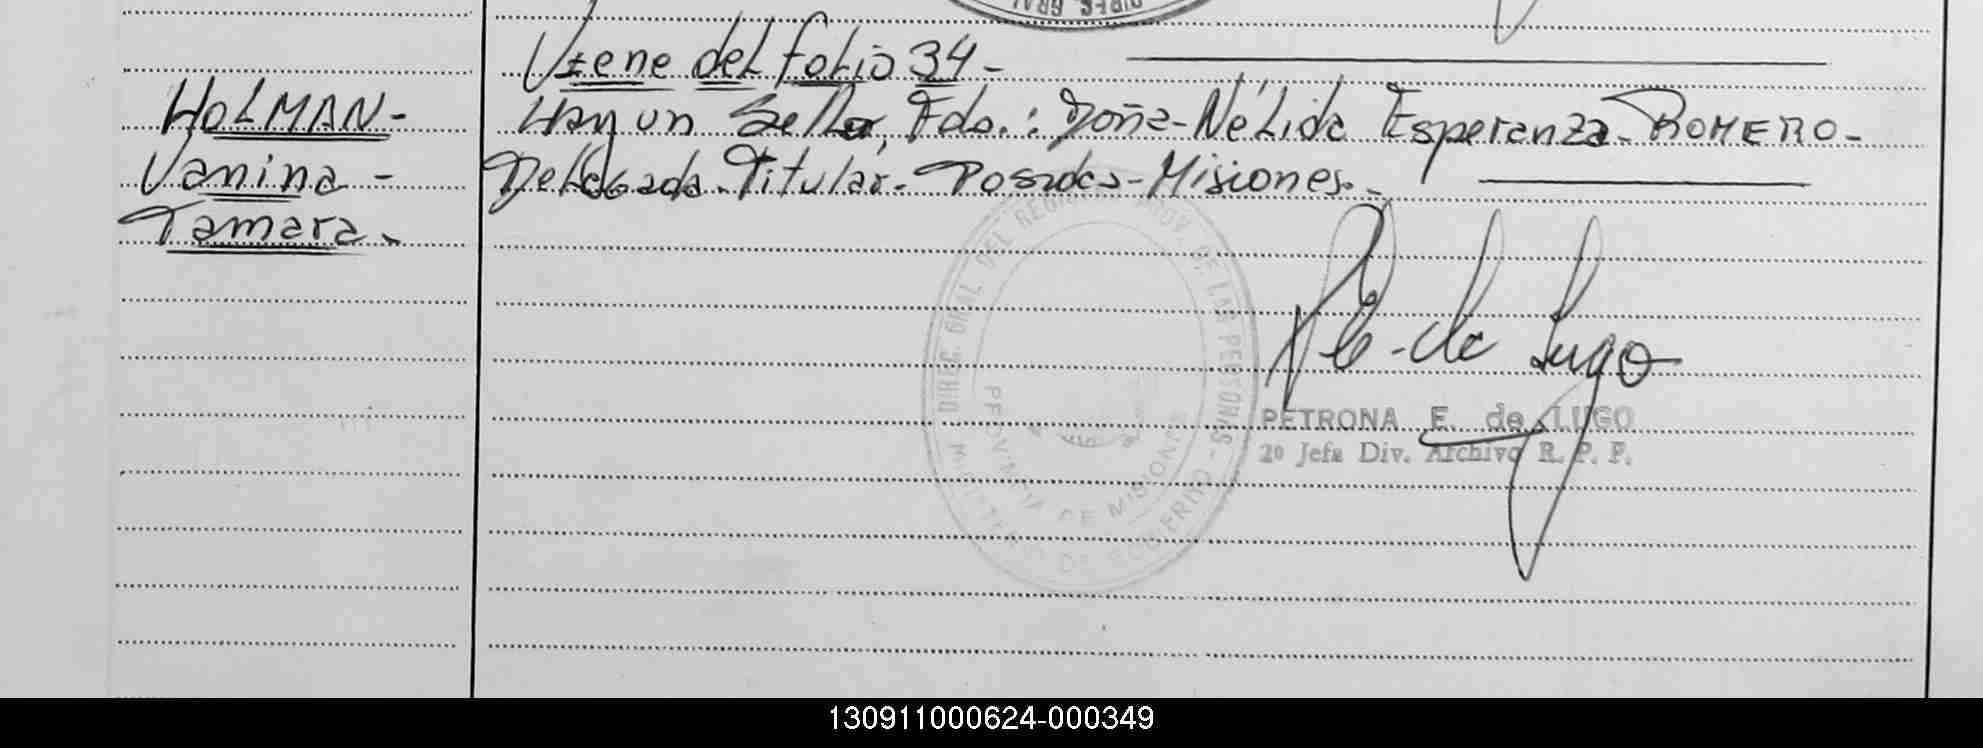 DIREC. GRAL
Viene del folio 34-
HOLMAN-
Vanina-
Tamara-
Hay un Sello, Fdo.: Doña-Nélida Esperanza-ROMERO-
Delegada-Titular-Posadas-Misiones.-
DIREC. GRAL DEL REGISTRO PROV. DE LAS PERSONAS - MINISTERIO DE GOBIERNO
PROVINCIA DE MISIONES
P E de Lugo
PETRONA E. de LUGO
2º Jefa Div. Archivo R. P. P.
130911000624-000349